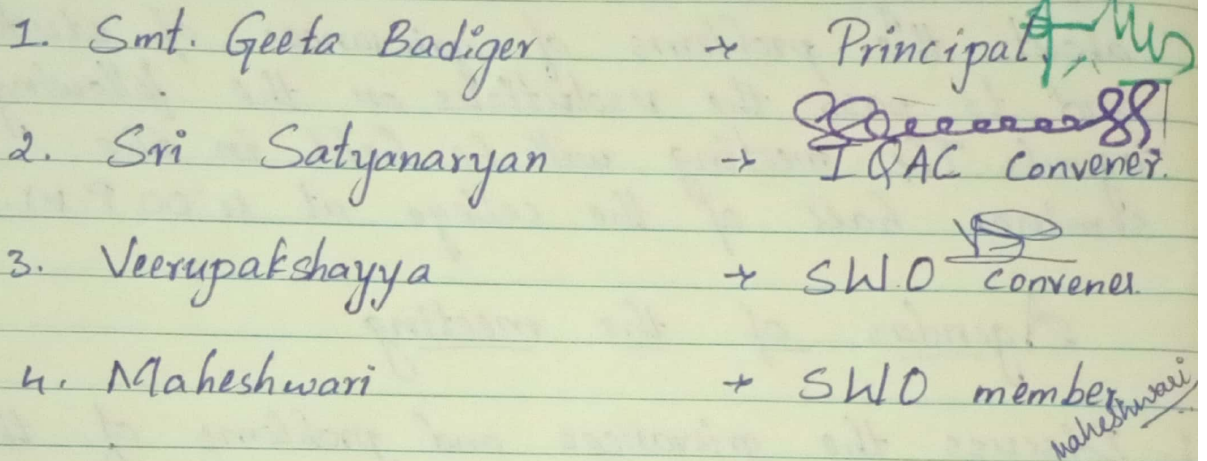 1. Smt. Geeta Badiger → Principal
2. Sri Satyanaryan → IQAC Convener.
3. Veerupakshayya → SW.O Convener.
4. Maheshwari → SWO member
Maheshwari